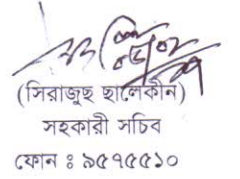 (সিরাজুছ ছালেকীন)
সহকারী সচিব
ফোন ঃ ৯৫৭৫৫১০